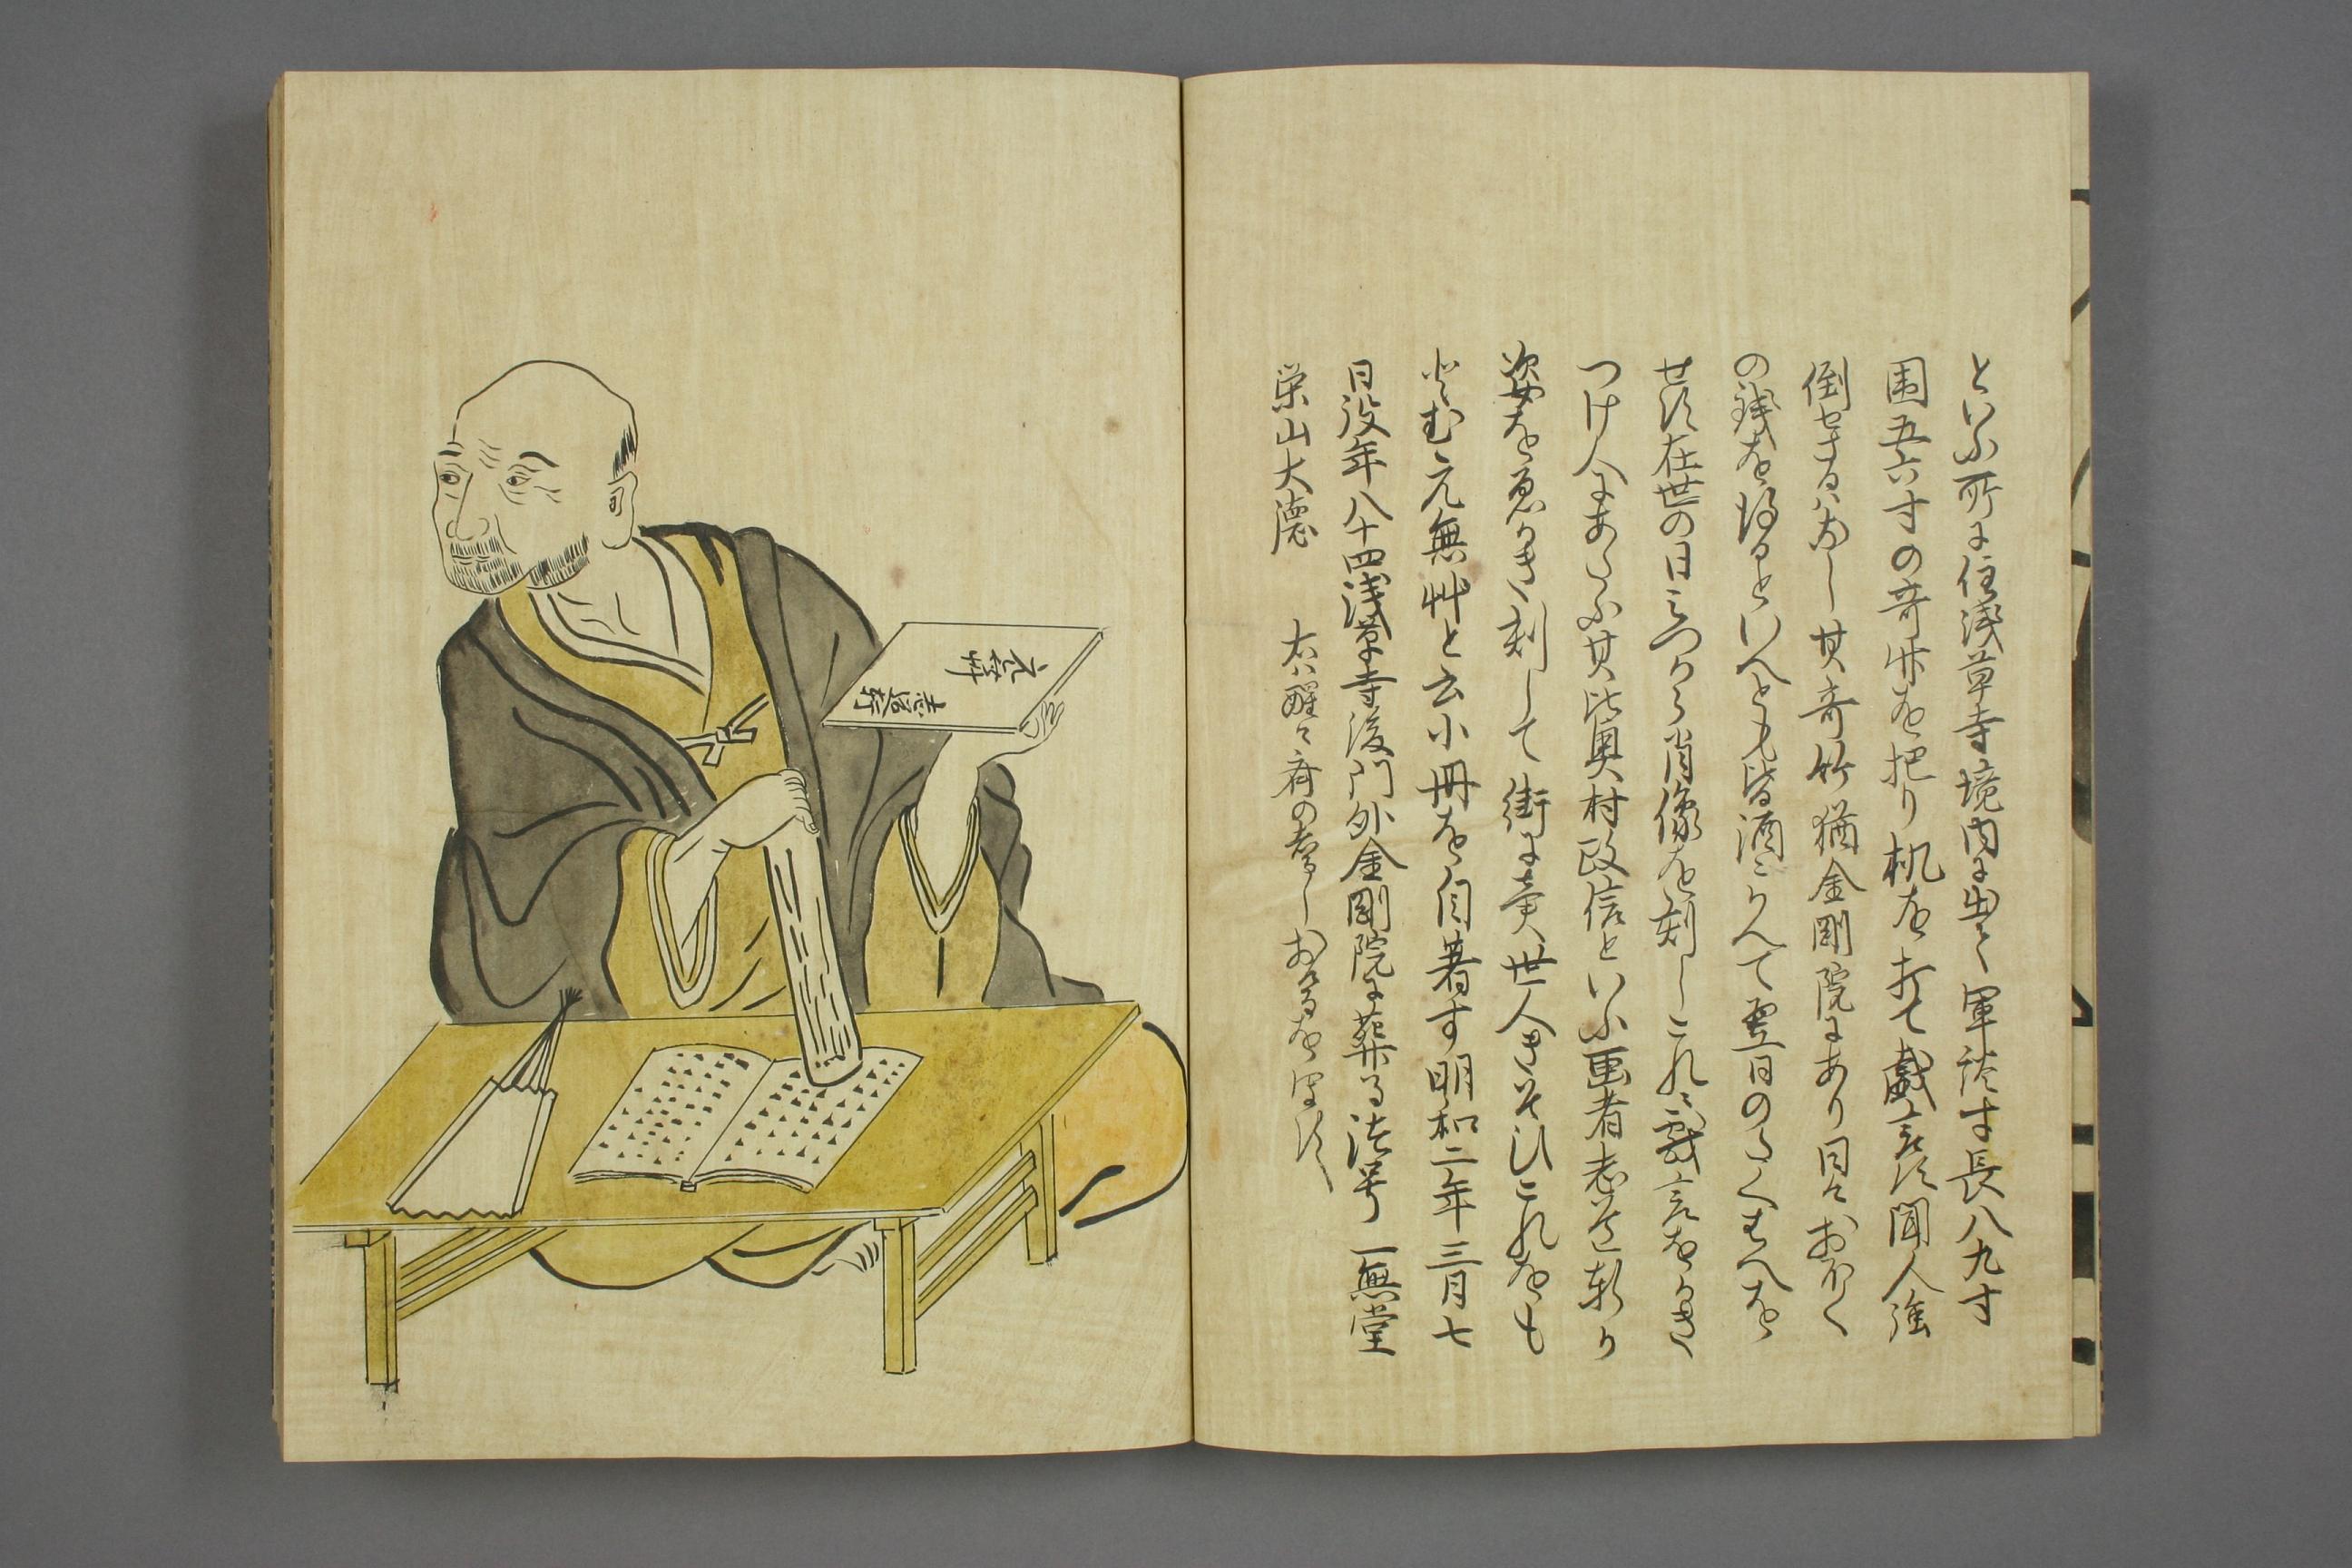 といふ所に住浅草寺境内に出て軍談す長八九寸
囲五六寸の奇竹を把り机を打て戯言す聞人絶
倒せさるハなし其奇竹猶金剛院にあり日々おほく
の銭を得るといへとも皆酒にかへて翌日のたくはへを
せす在世の日みつから肖像を刻しこれに戯言をかき
つけ人にあたふ其比奥村政信といふ画者志道軒か
姿をゑかき刻して街に売世人きそひこれをも
とむ元無艸と云小冊を自著す明和二年三月七
日没年八十四浅草寺後門外金剛院に葬る法号一無堂
栄山大徳　右ハ醒々斎の考しおけるを写す
元無艸
志道軒